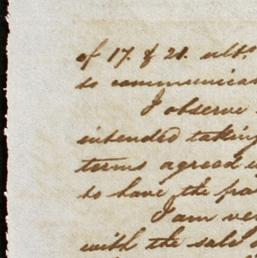 of 17. & 28. ult.
to communica
I observe
intended taking
terms agreed u
to have the pa
I am ver
with the sale